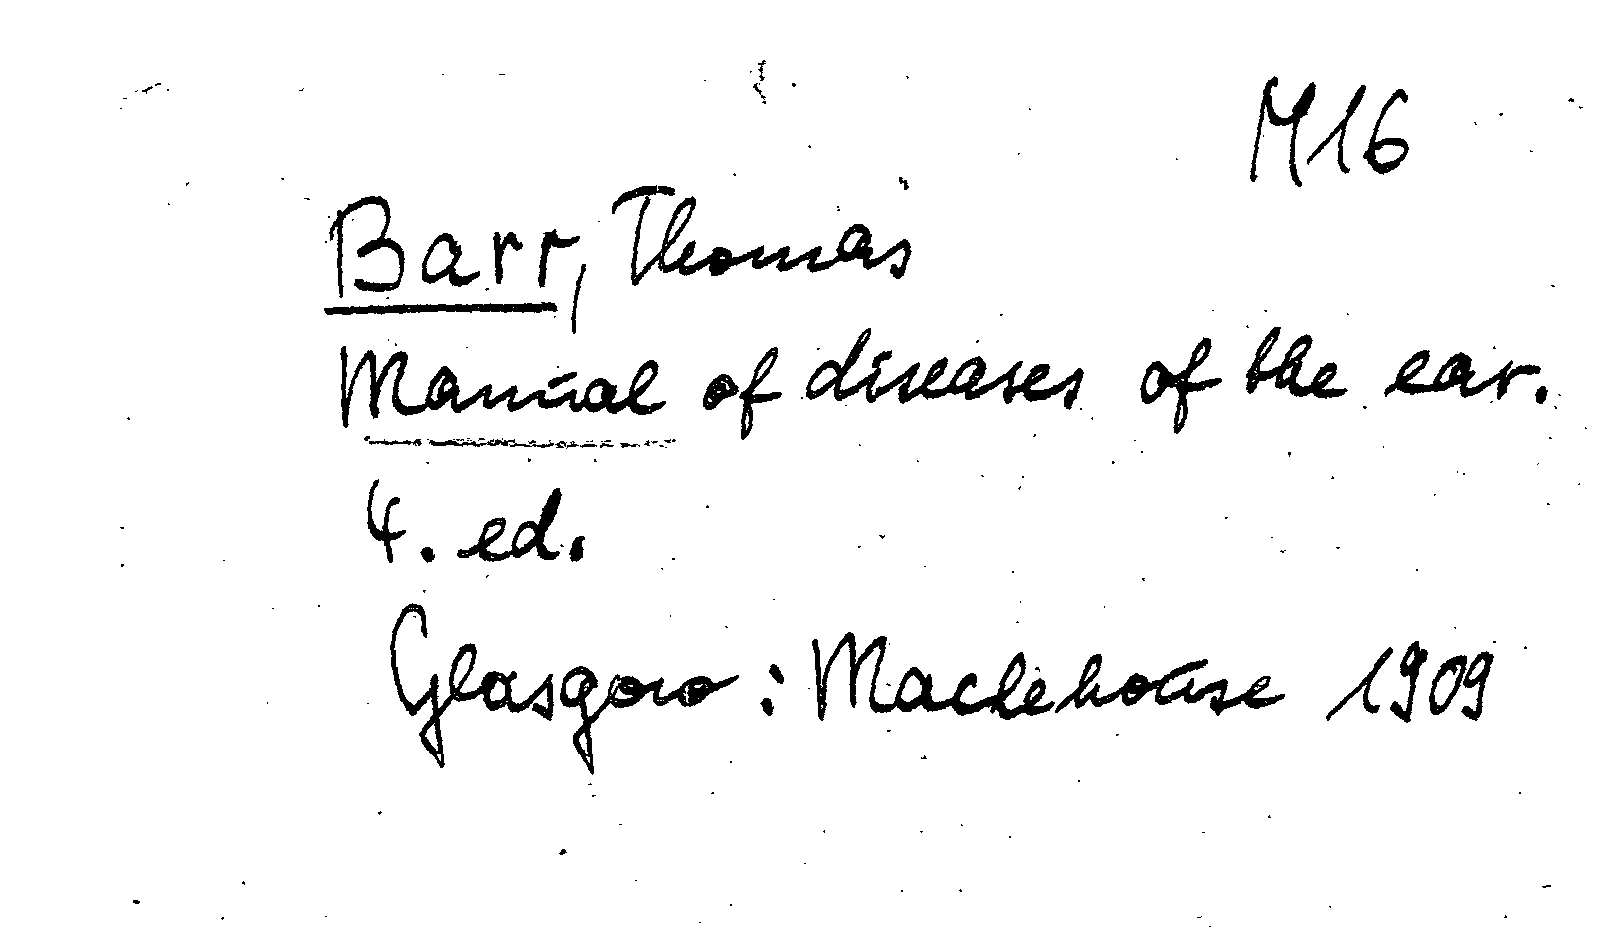 M16
Barr, Thomas
Manual of diseases of the ear.
4. ed.
Glasgow : Mackehouse 1909